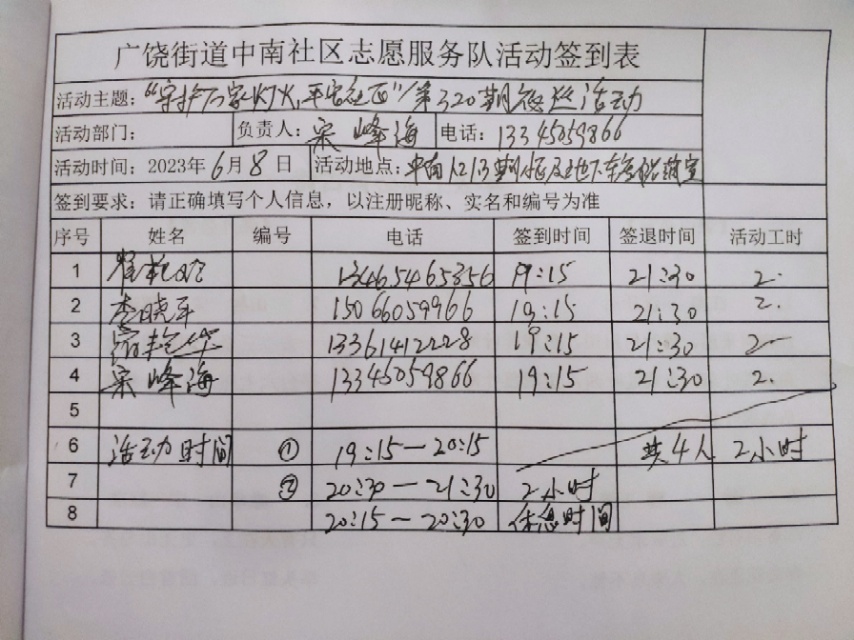 广饶街道中南社区志愿服务队活动签到表
活动主题:“守护万家灯火,平安社区”第320期夜巡活动
活动部门: 负责人:宋峰海 电话:13345059866
活动时间:2023年6月8日 活动地点:中南1213期小区及地下车库
签到要求:请正确填写个人信息,以注册昵称、实名和编号为准
序号 姓名 编号 电话 签到时间 签退时间 活动工时
1 13465465356 19:15 21:30 2.
2 李晓军 15066059966 19:15 21:30 2.
3 13361412228 19:15 21:30 2
4 宋峰海 13345059866 19:15 21:30 2.
5
6 活动时间 ① 19:15—20:15 共4人 2小时
7 ② 20:30—21:30 2小时
8 20:15—20:30 休息时间